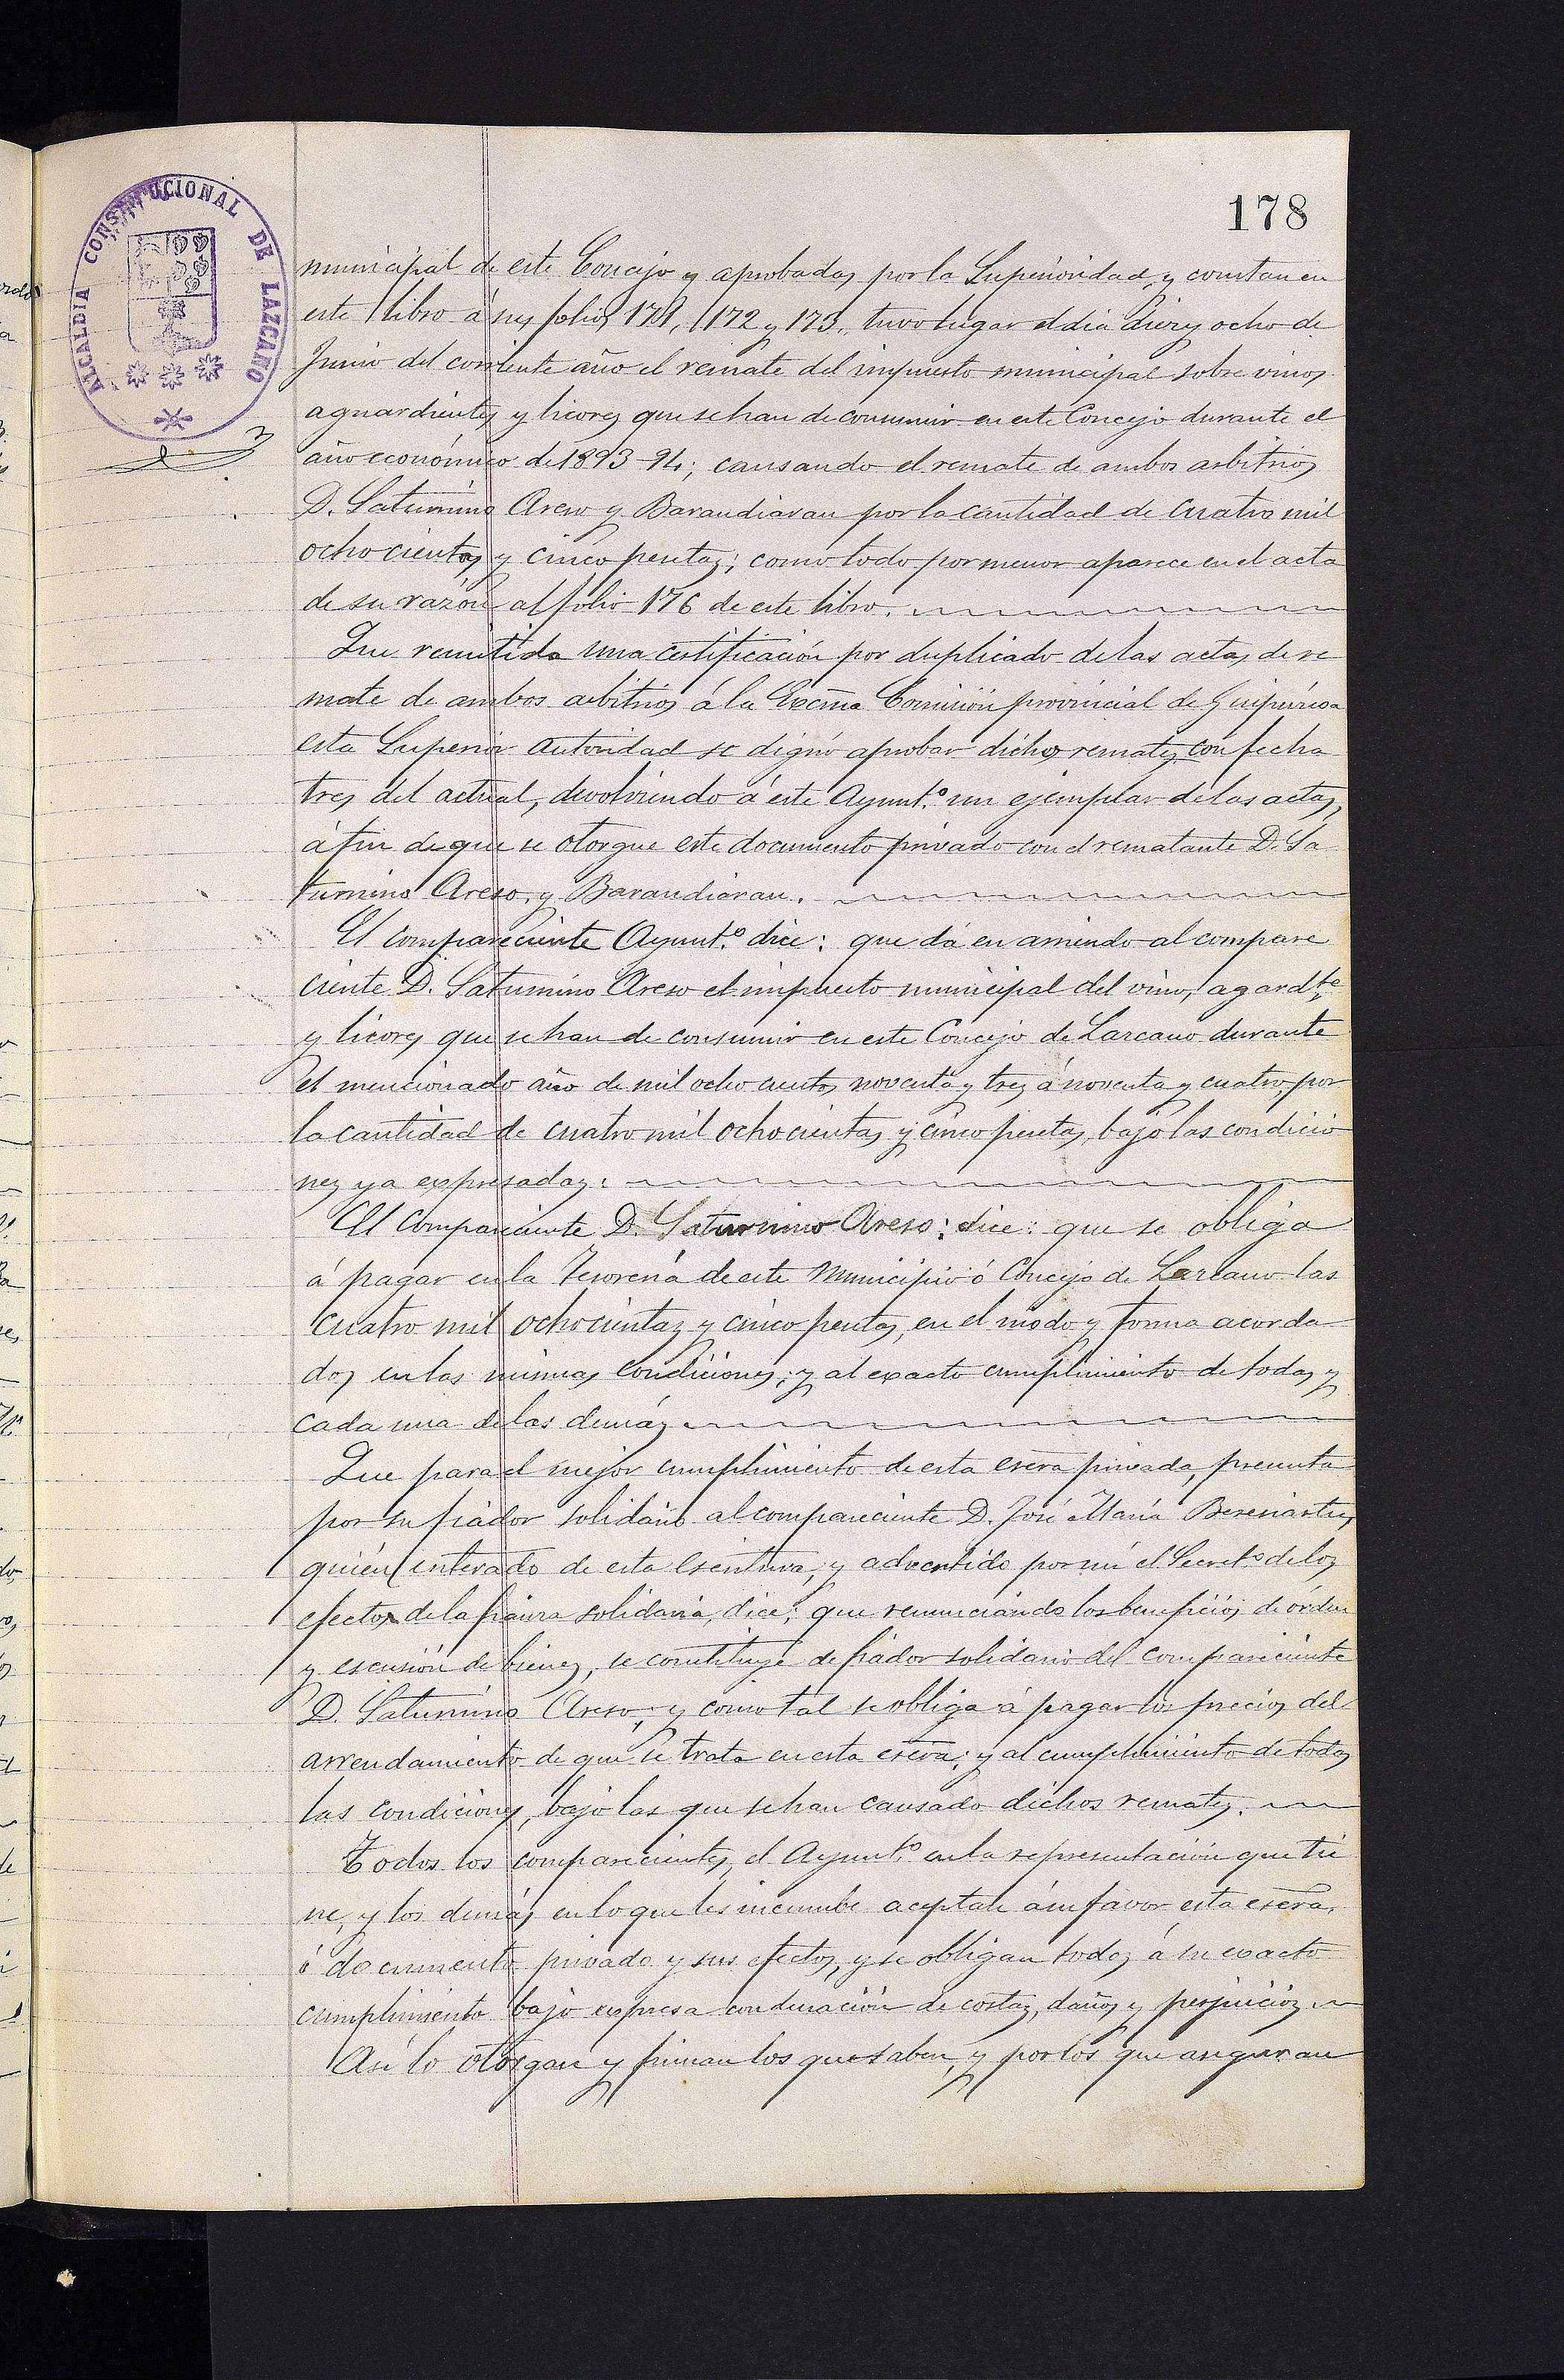 ALCALDIA CONSTITUCIONAL DE LAZCANO
178
municipal de este Concejo y aprobadas por la Superioridad, y constan en
este libro á sus folios 171, 172 y 173, tuvo lugar el dia diez y ocho de
Junio del corriente año el remate del impuesto municipal sobre vinos
aguardientes y licores que se han de consumir en este Concejo durante el
año económico de 1893-94; causando el remate de ambos arbitrios
D. Saturnino Areso y Barandiaran por la cantidad de cuatro mil
ochocientas y cinco pesetas; como todo por menor aparece en el acta
de su razón al folio 176 de este libro.
Que remitida una certificación por duplicado de las actas de re
mate de ambos arbitrios á la Excma Comisión provincial de Guipúzcoa
esta Superior autoridad se dignó aprobar dichos remates con fecha
tres del actual, devolviendo á este Ayunt.º un ejemplar de las actas,
á fin de que se otorgue este documento privado con el rematante D. Sa
turnino Areso y Barandiaran.
El compareciente Ayunt.º dice: que dá en arriendo al compare
ciente D. Saturnino Areso el impuesto municipal del vino, agardte
y licores que se han de consumir en este Concejo de Lazcano durante
el mencionado año de mil ocho cientos noventa y tres á noventa y cuatro, por
la cantidad de cuatro mil ochocientas y cinco pesetas, bajo las condicio
nes ya expresadas:
El compareciente D. Saturnino Areso: dice: que se obliga
á pagar en la Tesorería de este Municipio ó Concejo de Lazcano las
cuatro mil ochocientas y cinco pesetas, en el modo y forma acorda
dos en las mismas condiciones; y al exacto cumplimiento de todas y
cada una de las demás
Que para el mejor cumplimiento de esta escra privada, presenta
por su fiador solidario al compareciente D. José María Beresiartu,
quién enterado de esta escritura, y advertido por mí el Secret.º de los
efectos de la fianza solidaria, dice; que renunciando los beneficios de órden
y escusión de bienes, se constituye de fiador solidario del compareciente
D. Saturnino Areso; y como tal se obliga á pagar los precios del
arrendamiento de que se trata en esta escra; y al cumplimiento de todas
las condiciones, bajo las que se han causado dichos remates.
Todos los comparecientes, el Ayunt.º en la representación que tie
ne, y los demás en lo que les incumbe aceptan á su favor esta escra,
ó documento privado y sus efectos, y se obligan todos á su exacto
cumplimiento bajo expresa condenación de costas, daños y perjuicios.
Así lo otorgan y firman los que saben, y por los que aseguran